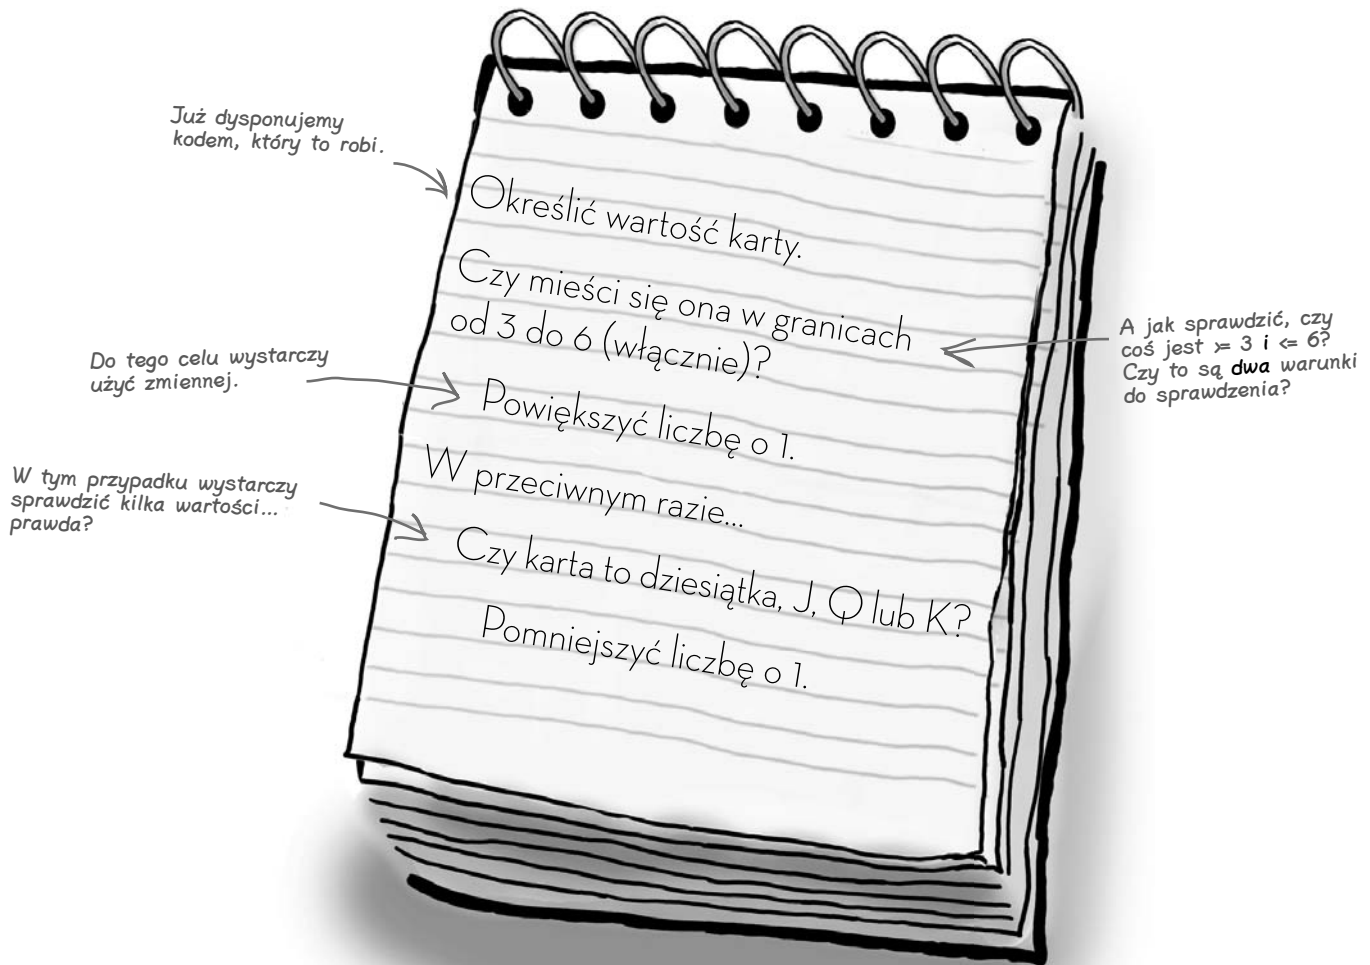 Już dysponujemy
kodem, który to robi.
Określić wartość karty.
Czy mieści się ona w granicach
od 3 do 6 (włącznie)?
A jak sprawdzić, czy
coś jest >= 3 i <= 6?
Czy to są dwa warunki
do sprawdzenia?
Do tego celu wystarczy
użyć zmiennej.
Powiększyć liczbę o 1.
W przeciwnym razie...
W tym przypadku wystarczy
sprawdzić kilka wartości...
prawda?
Czy karta to dziesiątka, J, Q lub K?
Pomniejszyć liczbę o 1.